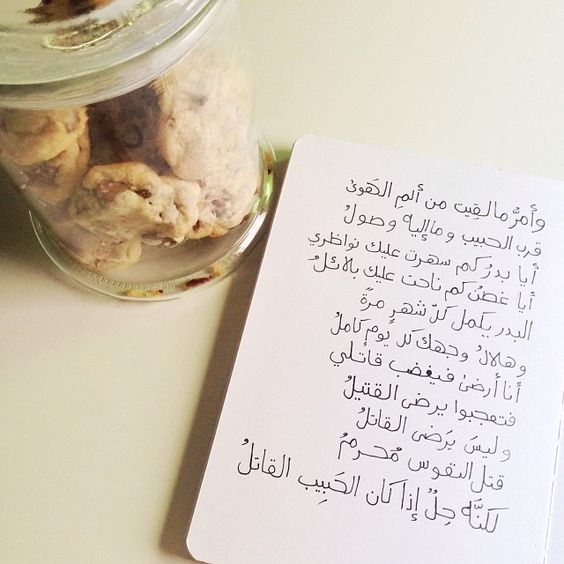 وأمرُّ ما لقيت من ألمِ الهَوىٰ
قرب الحبيب وما إليه وصولُ
أيا بدرُ كم سهرت عليك نواظري
أيا غصنُ كم ناحت عليك بلائلُ
البدر يكمل كلّ شهرٍ مرةً
وهلالُ وجهك كل يومٍ كاملُ
أنا أرضىٰ فيغضب قاتلي
فتعجبوا يرضى القتيلُ
وليسَ يَرضى القاتلُ
قتل النفوس مُحرمُ
لكنَّه حِلُ إذا كان الحَبيب القاتلُ